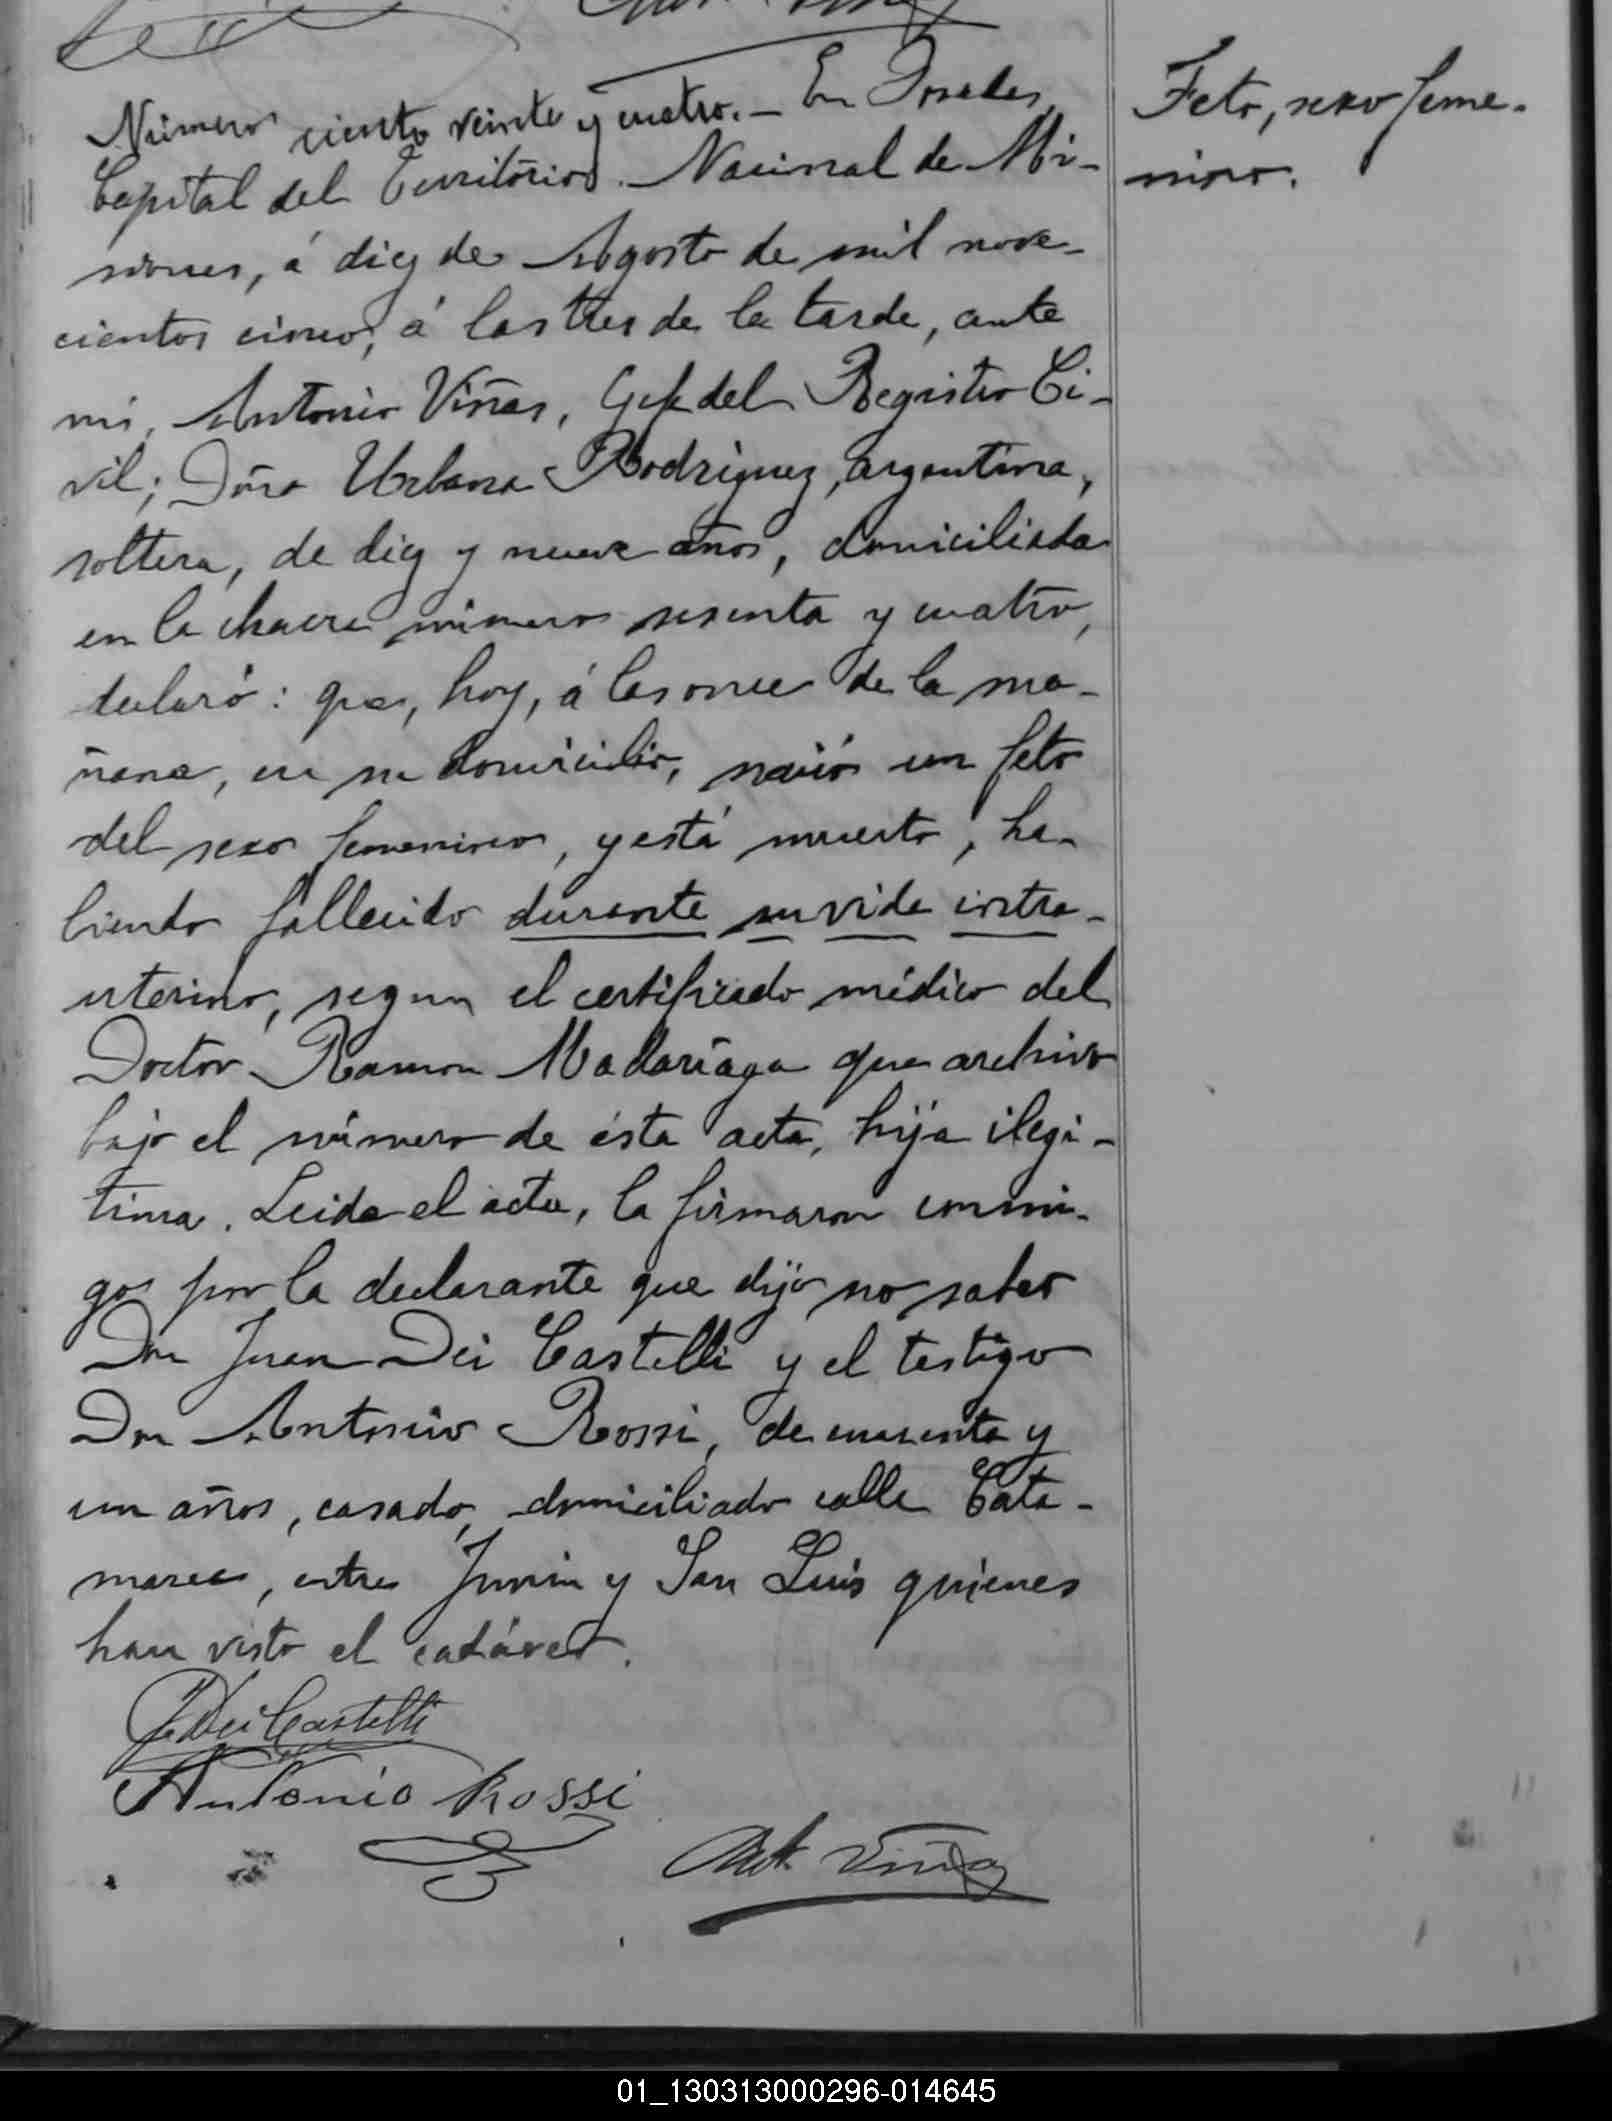 Número ciento veinte y cuatro.- En Posadas,
Capital del Territorio Nacional de Mi-
siones, á diez de Agosto de mil nove-
cientos cinco, á las tres de la tarde, ante
mi, Antonio Viñas, Gefe del Registro Ci-
vil; Doña Urbana Rodriguez, argentina,
soltera, de diez y nueve años, domiciliada
en la chacra número sesenta y cuatro,
declaró: que, hoy, á las once de la ma-
ñana, en su domicilio, nació un feto
del sexo femenino, y está muerto, ha-
biendo fallecido durante su vida intra-
uterino, segun el certificado médico del
Doctor Ramon Madariaga que archivo
bajo el número de ésta acta, hija ilegi-
tima. Leida el acta, la firmaron conmi-
go, por la declarante que dijo no saber
Don Juan Dei Castelli y el testigo
Don Antonio Rossi, de cuarenta y
un años, casado, domiciliado calle Cata-
marca, entre Junin y San Luis quienes
han visto el cadáver.
J. Dei Castelli
Antonio Rossi
Ant. Viñas
Feto, sexo feme-
nino.
01_130313000296-014645